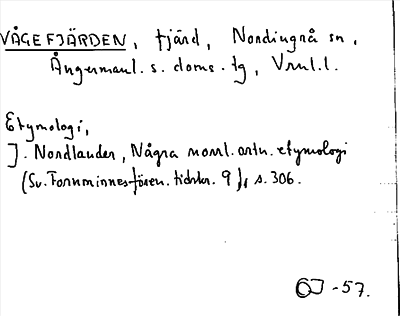 VÅGEFJÄRDEN, fjärd, Nordingrå sn,
Ångermanl. s. doms. tg, Vnl.l.
Etymologi,
J. Nordlander, Några norrl. ortn. etymologi
(Sv. Fornminnesfören. tidskr. 9), s. 306.
OJ -57.